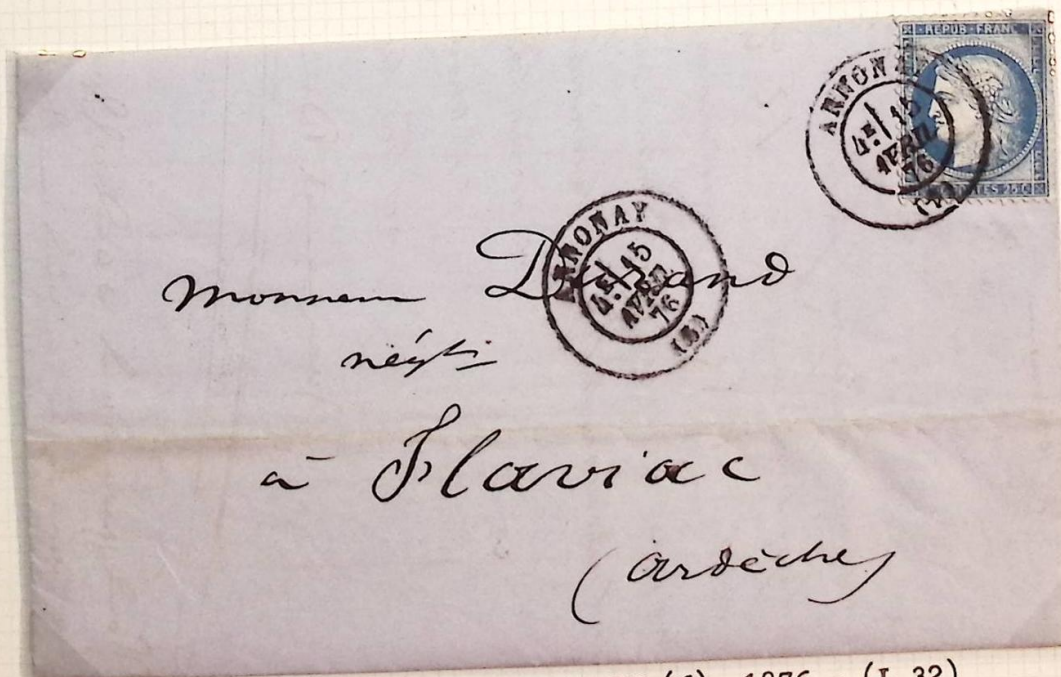 REPUB FRANC
ANNONAY
4E 15
AVRIL
76
POSTES 25 C
ANNONAY
4E 15
AVRIL
76
(6)
Monsieur Durand
négt
à Flaviac
(Ardèche)
1876 (I 32)